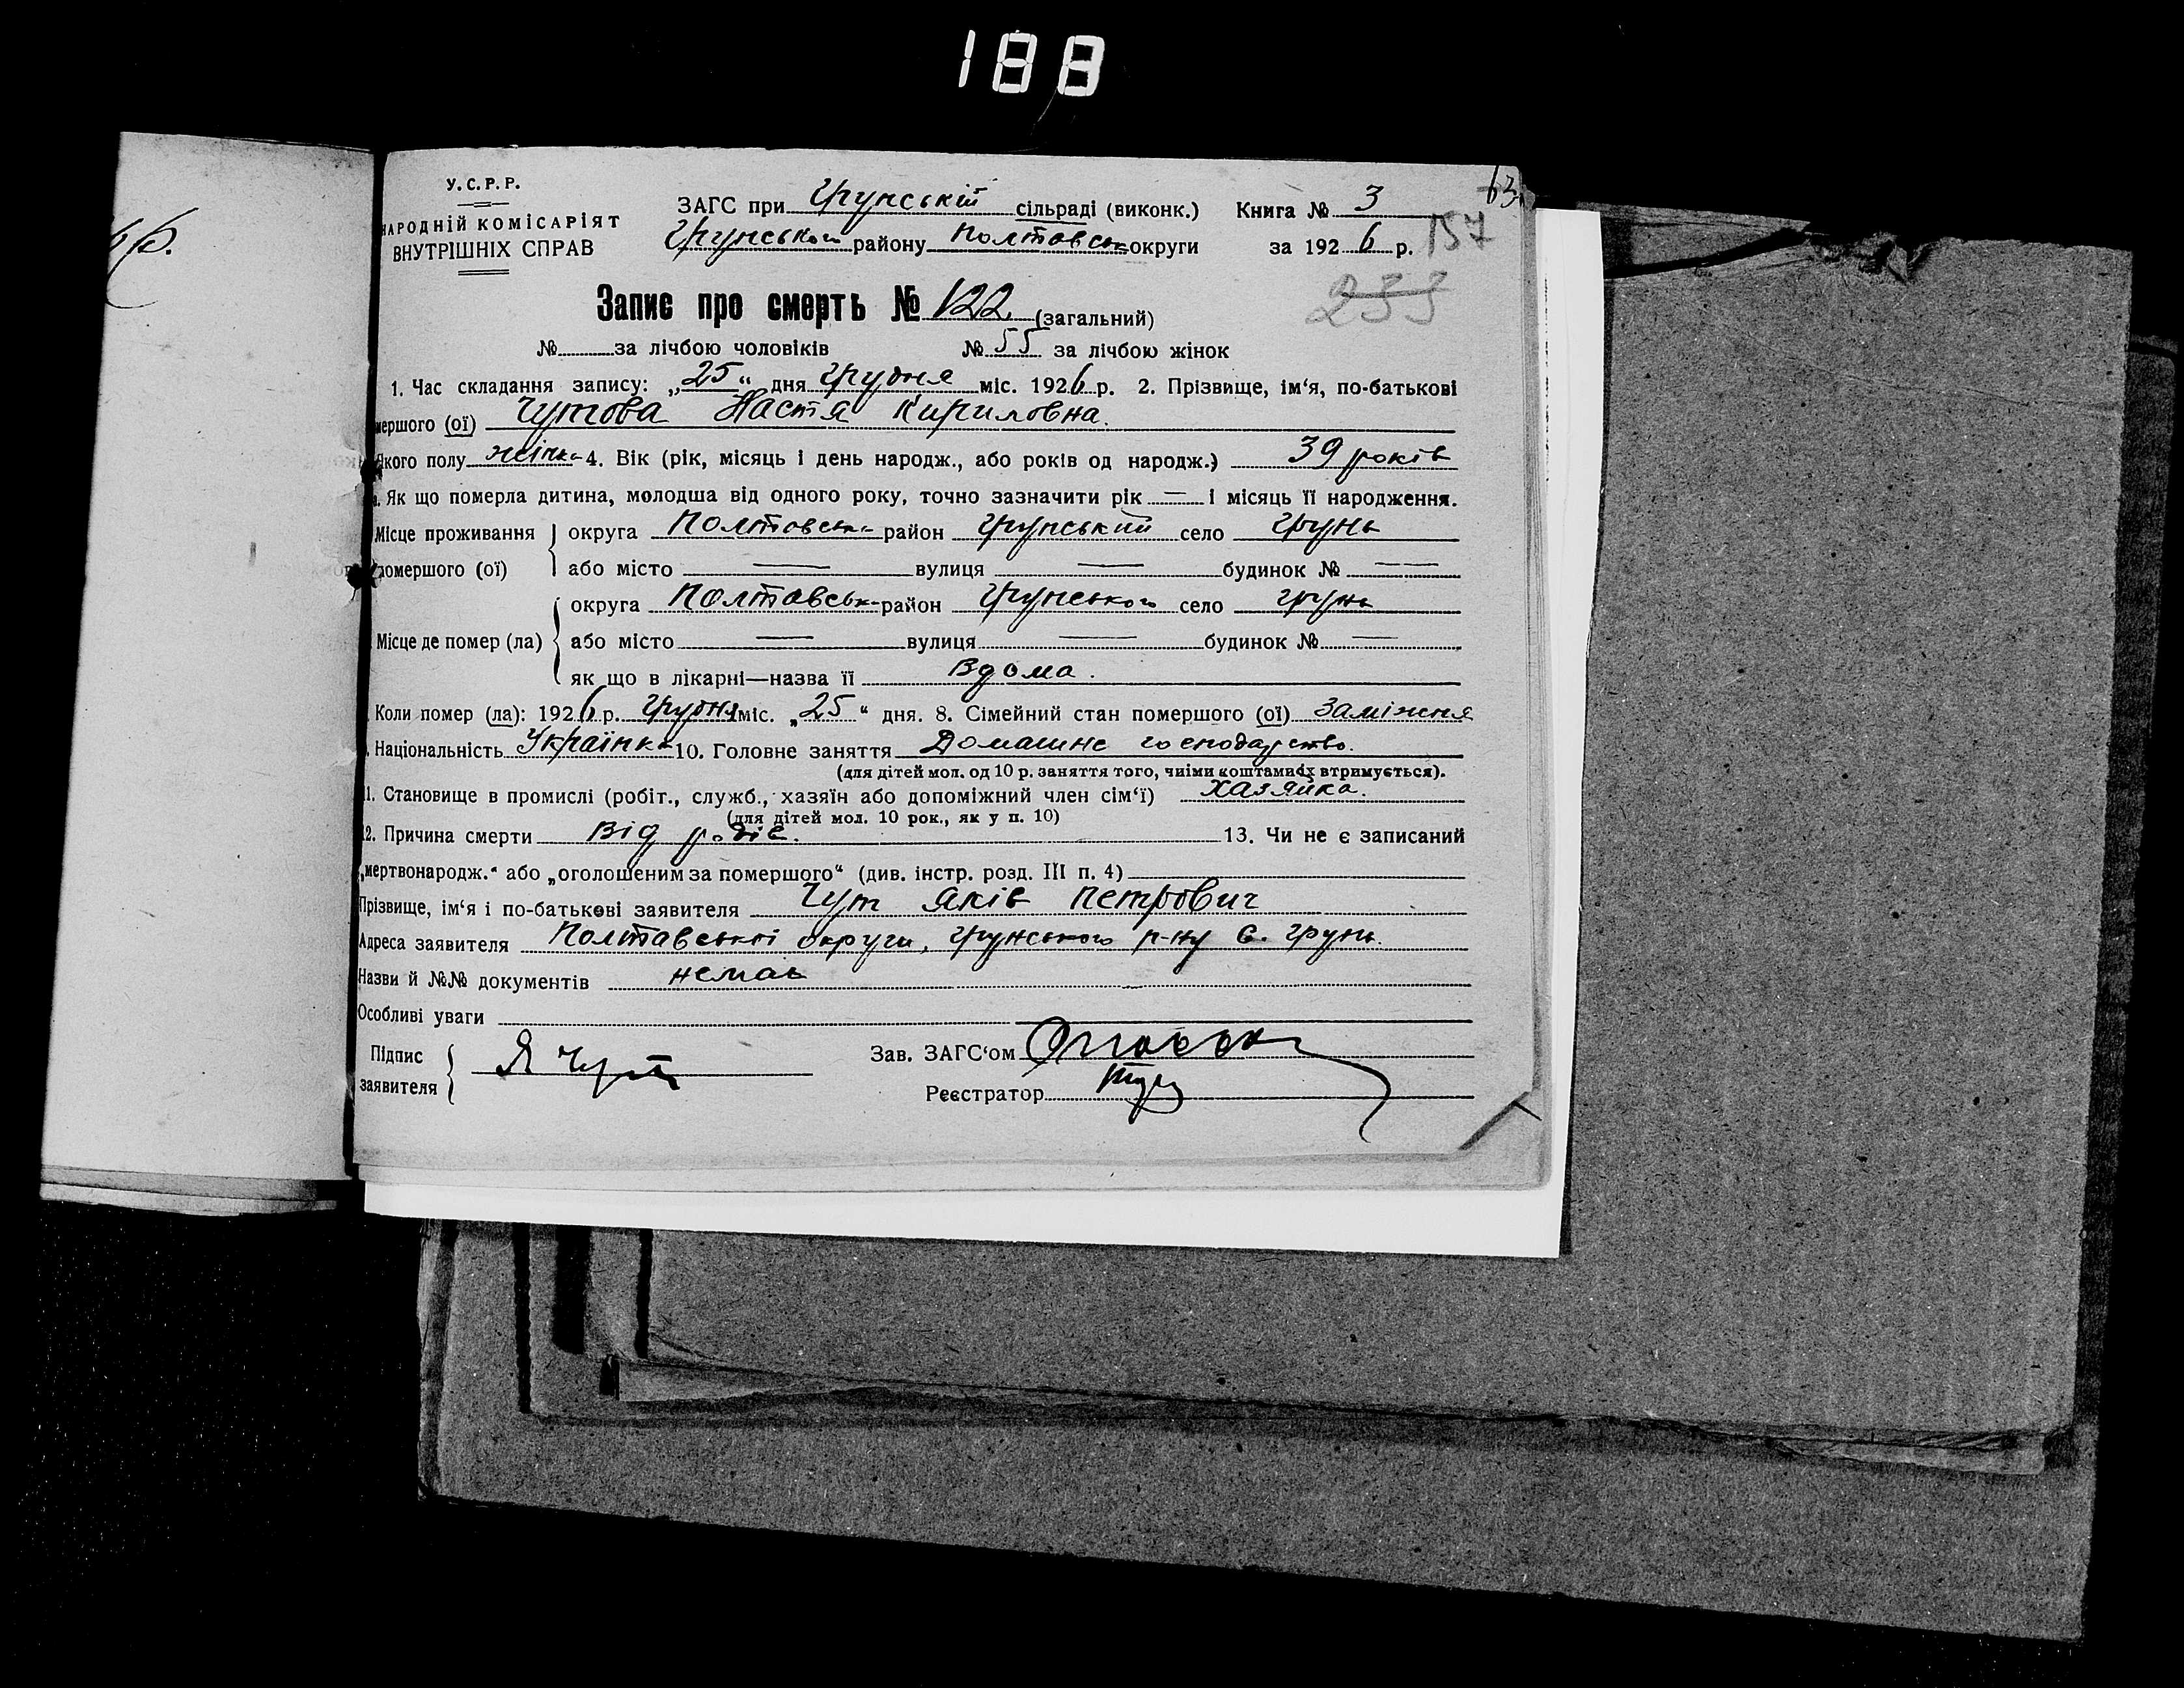 188
У.С.Р.Р.
НАРОДНІЙ КОМІСАРІЯТ
ВНУТРІШНІХ СПРАВ
ЗАГС при Грунській сільраді (виконк.) Книга № 3
63
Грунського району Полтавськ округи за 1926 р. 157
Запис про смерть № 122 (загальний)
233
№ за лічбою чоловіків № 55 за лічбою жінок
1. Час складання запису: „25“ дня Грудня міс. 1926 р. 2. Прізвище, ім‘я, по-батькові
мершого (ої) Чутова Настя Кириловна.
Якого полу жінка 4. Вік (рік, місяць і день народж., або років од народж.) 39 років
Як що померла дитина, молодша від одного року, точно зазначити рік — і місяць її народження.
Місце проживання округа Полтавськ район Грунський село Грунь
помершого (ої) або місто — вулиця — будинок № —
округа Полтавськ район Грунського село Грунь
Місце де помер (ла) або місто — вулиця — будинок № —
як що в лікарні—назва її Вдома.
Коли помер (ла): 1926 р. Грудня міс. „25“ дня. 8. Сімейний стан помершого (ої) Заміжня
Національність Українка 10. Головне заняття Домашнє господарство.
(для дітей мол. од 10 р. заняття того, чиїми коштами їх втримується).
11. Становище в промислі (робіт., служб., хазяїн або допоміжний член сім‘ї) Хазяйка.
(для дітей мол. 10 рок., як у п. 10)
12. Причина смерти Від родів. 13. Чи не є записаний
„мертвонародж.“ або „оголошеним за помершого“ (див. інстр. розд. III п. 4)
Прізвище, ім‘я і по-батькові заявителя Чут Яків Петрович
Адреса заявителя Полтавської округи, Грунського р-ну с. Грунь.
Назви й №№ документів немає
Особливі уваги
Підпис
заявителя Я Чут
Зав. ЗАГС‘ом
Реєстратор